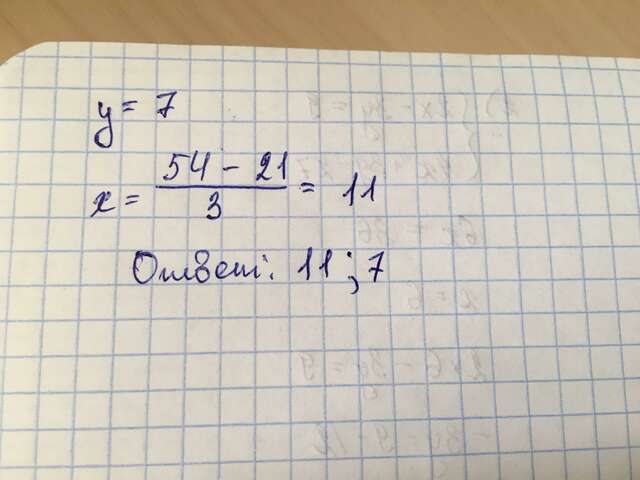 y = 7
x = \frac{54 - 21}{3} = 11
Ответ: 11 ; 7